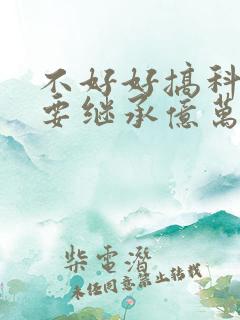 不好好搞科
要继承億萬
柴電潛
未经同意禁止转载